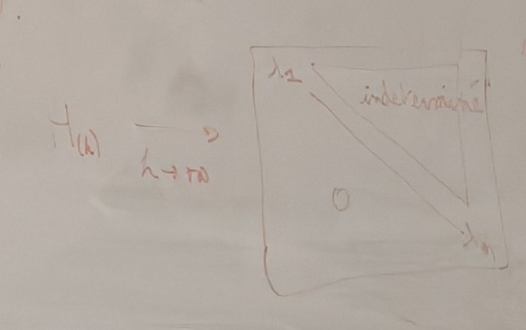 A(k) → λ1 indéterminé
k→+∞
0
λn